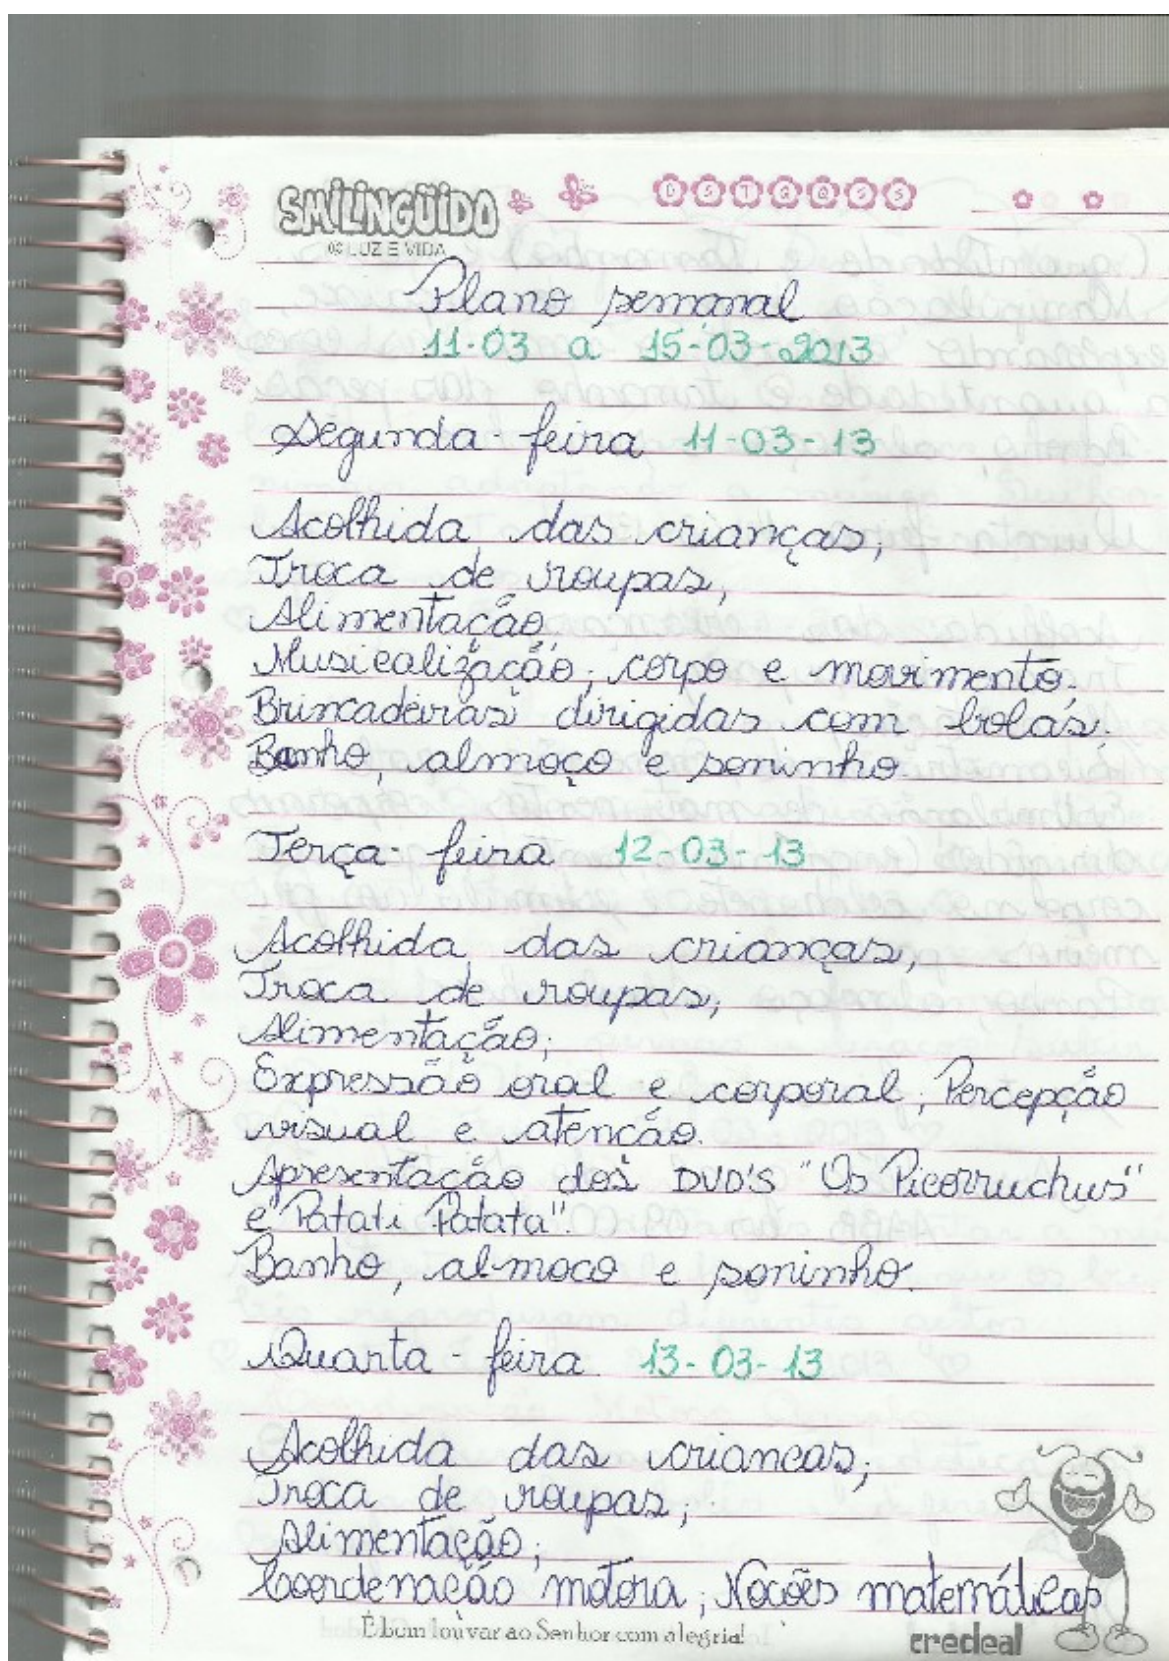 SMILINGÜIDO
© LUZ E VIDA
D S T Q Q S S
Plano semanal
11-03 a 15-03-2013
Segunda-feira 11-03-13
Acolhida das crianças;
Troca de roupas,
Alimentação.
Musicalização; corpo e movimento.
Brincadeiras dirigidas com bolas.
Banho, almoço e soninho.
Terça-feira 12-03-13
Acolhida das crianças,
Troca de roupas;
Alimentação;
Expressão oral e corporal; Percepção
visual e atenção.
Apresentação dos DVD'S "Os Picorruchus"
e "Patati Patata".
Banho, almoco e soninho.
Quarta-feira. 13-03-13
Acolhida das criancas;
Troca de roupas;
Alimentação;
Coordenação motora; Nocões matemáticas
É bom louvar ao Senhor com alegria!
credeal